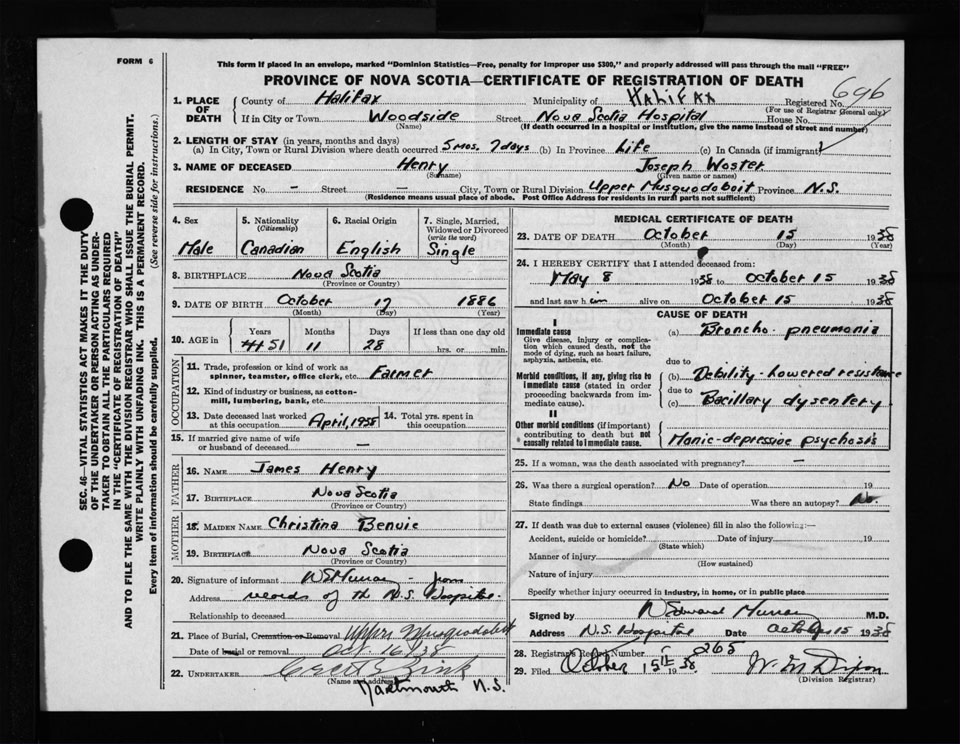 FORM 6
This form if placed in an envelope, marked "Dominion Statistics—Free, penalty for improper use $300," and properly addressed will pass through the mail "FREE"
PROVINCE OF NOVA SCOTIA—CERTIFICATE OF REGISTRATION OF DEATH
696
1. PLACE OF DEATH { County of Halifax Municipality of HALIFAX Registered No.
(For use of Registrar General only)
If in City or Town Woodside Street Nova Scotia Hospital House No.
(Name) (If death occurred in a hospital or institution, give the name instead of street and number)
2. LENGTH OF STAY (in years, months and days)
(a) In City, Town or Rural Division where death occurred 5 mos. 7 days (b) In Province Life (c) In Canada (if immigrant)
3. NAME OF DECEASED Henry Joseph Woster
(Surname) (Given name or names)
RESIDENCE No. – Street — City, Town or Rural Division Upper Musquodoboit Province N.S.
(Residence means usual place of abode. Post Office Address for residents in rural parts not sufficient)
4. Sex 5. Nationality 6. Racial Origin 7. Single, Married,
(Citizenship) Widowed or Divorced
(write the word)
Male Canadian English Single
8. BIRTHPLACE Nova Scotia
(Province or Country)
9. DATE OF BIRTH October 17 1886
(Month) (Day) (Year)
Years Months Days If less than one day old
10. AGE in 51 11 28 hrs. or min.
OCCUPATION
11. Trade, profession or kind of work as
spinner, teamster, office clerk, etc. Farmer
12. Kind of industry or business, as cotton-
mill, lumbering, bank, etc.
13. Date deceased last worked 14. Total yrs. spent in
at this occupation April, 1938 this occupation
15. If married give name of wife
or husband of deceased —
FATHER
16. NAME James Henry
17. BIRTHPLACE Nova Scotia
(Province or Country)
MOTHER
18. MAIDEN NAME Christina Benvie
19. BIRTHPLACE Nova Scotia
(Province or Country)
20. Signature of informant W E Murray – from
Address records of the N.S. Hospital.
Relationship to deceased
21. Place of Burial, Cremation or Removal Upper Musquodoboit
Date of burial or removal Oct. 16/38
22. UNDERTAKER Zink
(Name and address)
Dartmouth N.S.
MEDICAL CERTIFICATE OF DEATH
23. DATE OF DEATH October 15 1938
(Month) (Day) (Year)
24. I HEREBY CERTIFY that I attended deceased from:
May 8 1938 to October 15 1938
and last saw h im alive on October 15 1938
CAUSE OF DEATH
I
Immediate cause (a) Broncho-pneumonia
Give disease, injury or complica-
tion which caused death, not the
mode of dying, such as heart failure,
asphyxia, asthenia, etc.
due to
Morbid conditions, if any, giving rise to
immediate cause (stated in order
proceeding backwards from im-
mediate cause).
(b) Debility-lowered resistance
due to
(c) Bacillary dysentery
II
Other morbid conditions (if important)
contributing to death but not
causally related to immediate cause.
Manic-depressive psychosis
25. If a woman, was the death associated with pregnancy? —
26. Was there a surgical operation? No Date of operation 19
State findings Was there an autopsy? No.
27. If death was due to external causes (violence) fill in also the following:—
Accident, suicide or homicide? Date of injury 19
(State which)
Manner of injury
(How sustained)
Nature of injury
Specify whether injury occurred in industry, in home, or in public place
Signed by W Edward Murray M.D.
Address N.S. Hospital Date October 15 1938
28. Registrar's Record Number 265
29. Filed October 15th 1938 W. M. Dixon
(Division Registrar)
SEC. 46—VITAL STATISTICS ACT MAKES IT THE DUTY
OF THE UNDERTAKER OR PERSON ACTING AS UNDER-
TAKER TO OBTAIN ALL THE PARTICULARS REQUIRED
IN THE "CERTIFICATE OF REGISTRATION OF DEATH"
AND TO FILE THE SAME WITH THE DIVISION REGISTRAR WHO SHALL ISSUE THE BURIAL PERMIT.
WRITE PLAINLY WITH UNFADING INK. THIS IS A PERMANENT RECORD.
Every item of information should be carefully supplied. (See reverse side for instructions.)